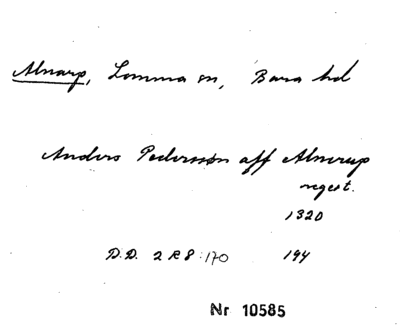 Alnarp, Lomma sn, Bara hd
Anders Pedersson aff Alnerup
regest.
1320
D.D. 2 R 8:170 194
Nr 10585